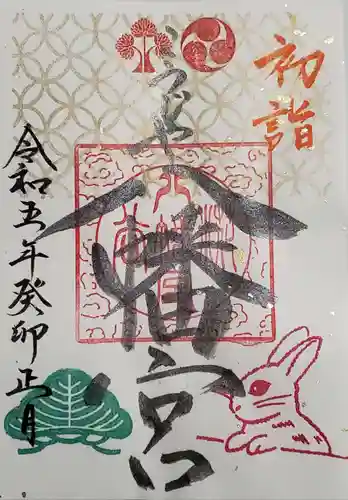 初詣
八幡宮
令和五年癸卯正月